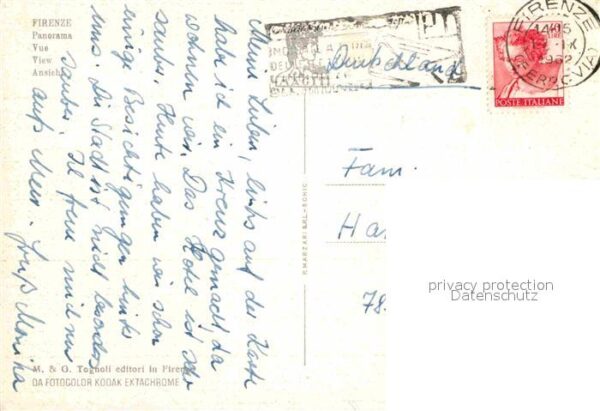 FIRENZE
Panorama
Vue
View
Ansicht
Meine Lieben, links auf der Karte
habe ich ein Kreuz gemacht da
wohnen wir. Das Hotel ist sehr
sauber. Heute haben wir schon
einige Besichtigungen hinter
uns. Die Stadt ist nicht besonders
sauber. Ich freue mich nur
aufs Meer. Gruß Monika
M. & G. Tognoli editori in Firenze
DA FOTOCOLOR KODAK EKTACHROME
P. MARZARI S.R.L.-SCHIO
Deutschland
FIRENZE
FERROVIA
POSTE ITALIANE
Fam.
Ha
78
privacy protection
Datenschutz